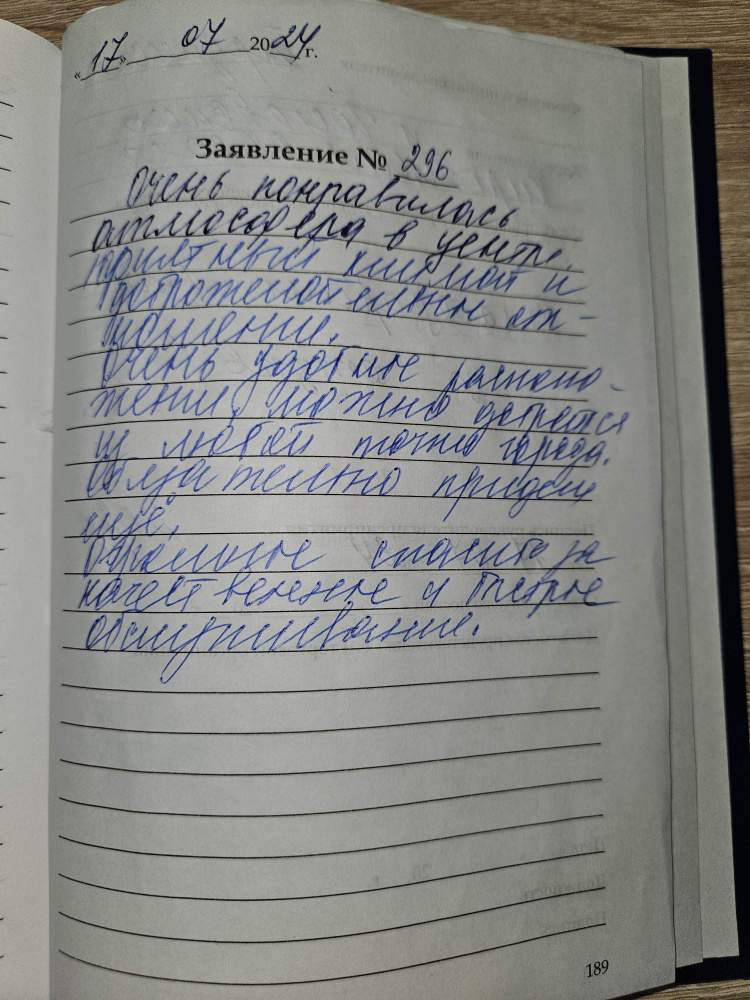 «17» 07 2024 г.
Заявление № 296
Очень понравилась
атмосфера в центре,
приятный климат и
доброжелательны от-
ношение.
Очень удобное располо-
жение, можно добратся
из любой точки города.
Обязательно придем
ещё.
Огромное спасибо за
качественное и быстрое
обслуживание.
189